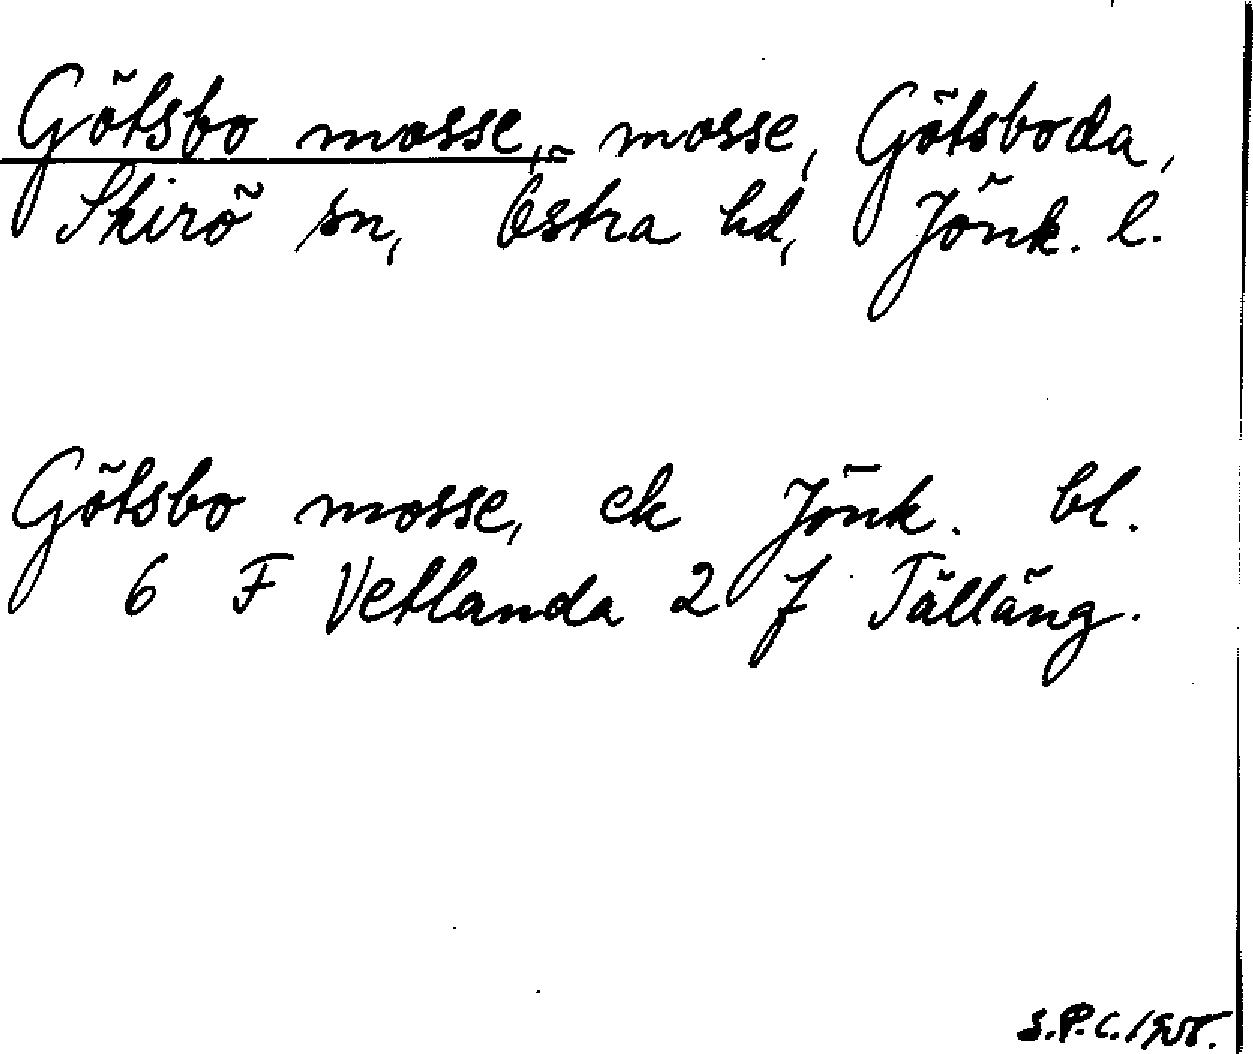 Götsbo mosse, mosse, Götsboda,
Skirö sn, Östra hd, Jönk. l.
Götsbo mosse, ek Jönk. bl.
6 F Vetlanda 2 f Tälläng.
S.P.C.